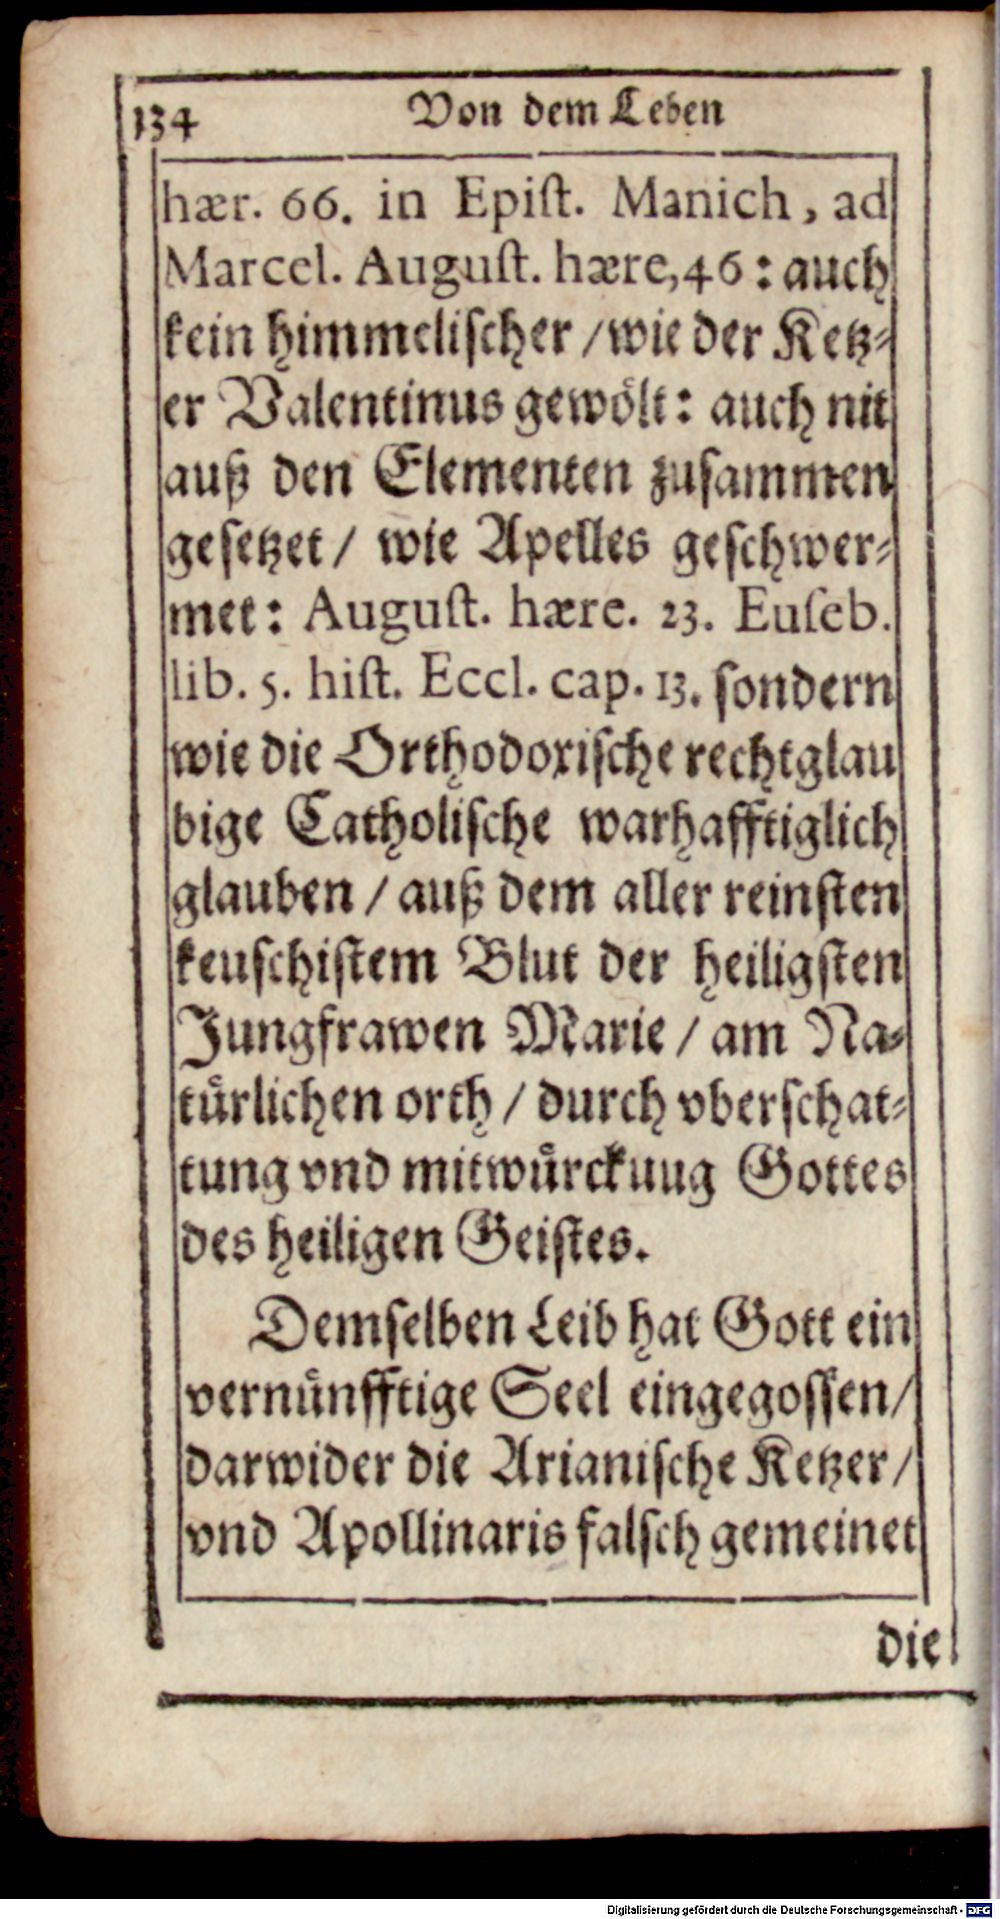 134 Von dem Leben
hær. 66. in Epiſt. Manich, ad
Marcel. Auguſt. hære,46: auch
kein himmeliſcher /wie der Ketz-
er Valentinus gewoͤlt: auch nit
auß den Elementen zuſammen
geſetzet / wie Apelles geſchwer-
met: Auguſt. hære. 23. Euſeb.
lib. 5. hiſt. Eccl. cap. 13. ſondern
wie die Orthodoxiſche rechtglau
bige Catholiſche warhafftiglich
glauben / auß dem aller reinſten
keuſchiſtem Blut der heiligſten
Jungfrawen Marie / am Na-
tuͤrlichen orth / durch vberſchat-
tung vnd mitwuͤrckuug Gottes
des heiligen Geiſtes.
Demſelben Leib hat Gott ein
vernuͤnfftige Seel eingegoſſen/
darwider die Arianiſche Ketzer/
vnd Apollinaris falſch gemeinet
die
Digitalisierung gefördert durch die Deutsche Forschungsgemeinschaft - DFG